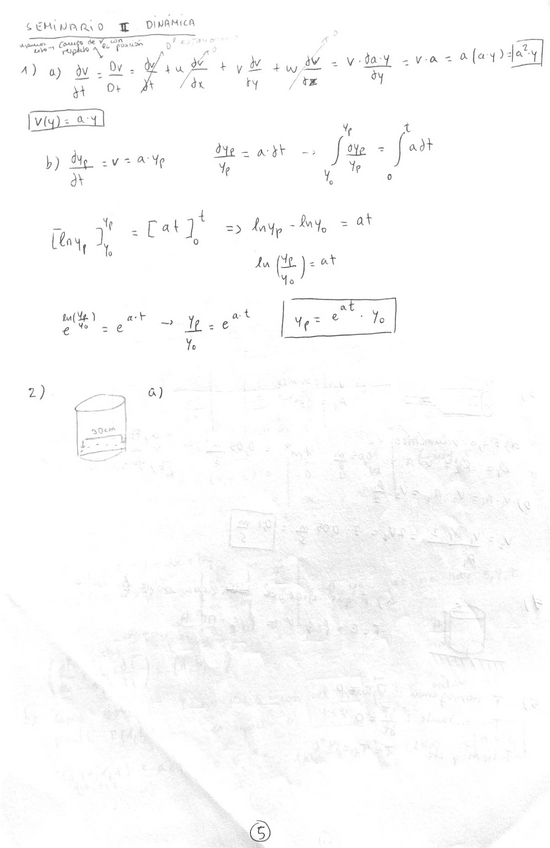 SEMINARIO II DINÁMICA
campo de v con
respecto a posición
1) a) dv/dt = Dv/Dt = dv/dt + u dv/dx + v dv/dy + w dv/dz = v · da·y/dy = v · a = a(a·y) = a²·y
v(y) = a·y
b) dyp/dt = v = a·yp   dyp/yp = a·dt → ∫_{y0}^{yp} dyp/yp = ∫_0^t a dt
[ln yp]_{y0}^{yp} = [at]_0^t => ln yp - ln y0 = at
ln (yp/y0) = at
e^{ln(yp/y0)} = e^{a·t} → yp/y0 = e^{a·t}   yp = e^{at} · y0
2) a)
30cm
5